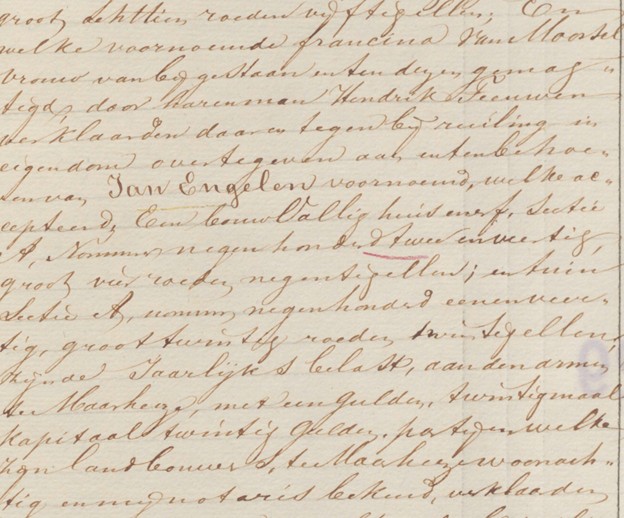 groot achttien roeden vyftig ellen; En
welke voornoemde francina van Moorsel
vrouw van bygestaan en ten dezen gemag-
tigd, door haren man Hendrik Teeuwen
verklaarden daar en tegen by ruiling in
eigendom over te geven aan en ten behoe-
ven van Jan Engelen voornoemd, welke ac-
cepteerd; Een bouwvallig huis en erf, Sectie
A, Nommer negenhonderd twee en veertig,
groot vier roeden negentig ellen; en tuin
Sectie A, nommer negenhonderd een en veer-
tig, groot twintig roeden twintig ellen,
zynde Jaarlyks belast, aan den armen
te Maarheeze, met een gulden, twintigmaal
kapitaal twintig gulden. partyen welke
zyn landbouwers, te Maarheeze woonach-
tig en my notaris bekend, verklaarden